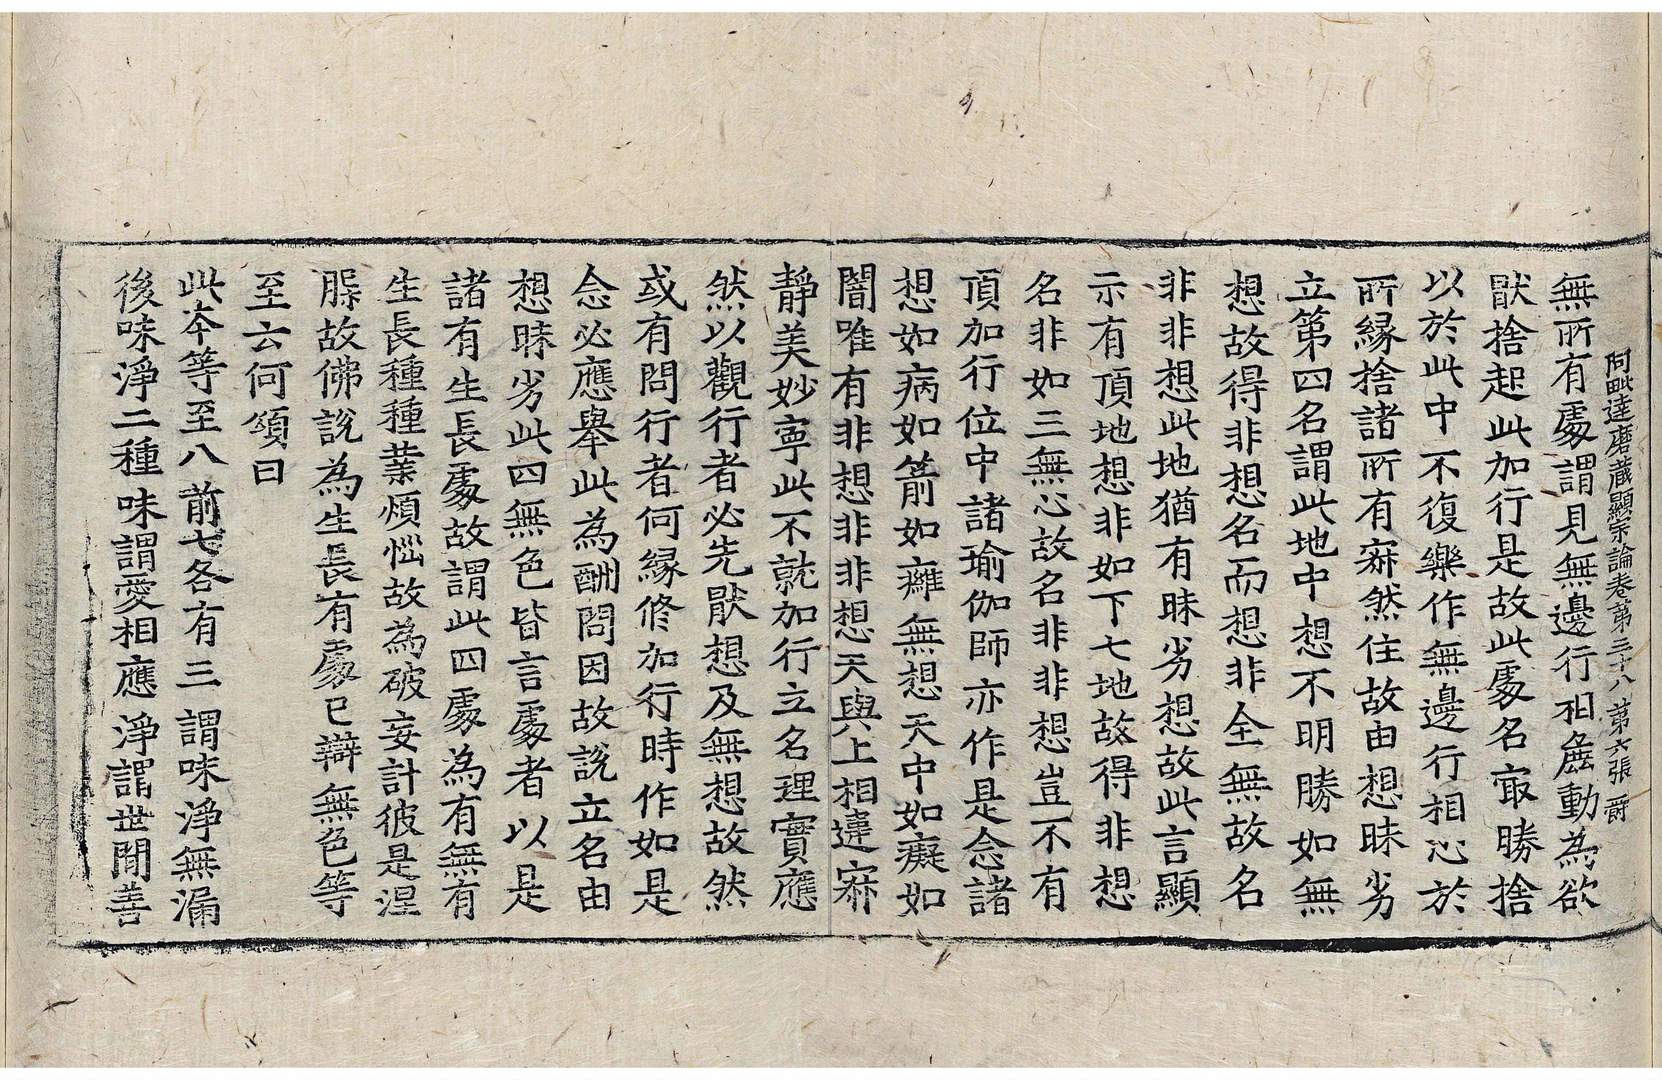 阿毗達磨藏顯宗論卷第三十八 第六張 爵
無所有處謂見無邊行相麁動為欲
猒捨起此加行是故此處名寂勝捨
以於此中不復樂作無邊行相心於
所緣捨諸所有寂然住故由想昧劣
立第四名謂此地中想不明勝如無
想故得非想名而想非全無故名
非非想此地猶有昧劣想故此言顯
示有頂地想非如下七地故得非想
名非如三無心故名非非想豈不有
頂加行位中諸瑜伽師亦作是念諸
想如病如箭如癰無想天中如癡如
闇唯有非想非非想天與上相違寂
靜美妙寧此不就加行立名理實應
然以觀行者必先猒想及無想故然
或有問行者何緣修加行時作如是
念必應舉此為酬問因故說立名由
想昧劣此四無色皆言處者以是
諸有生長處故謂此四處為有無有
生長種種業煩惱故為破妄計彼是涅
槃故佛說為生長有處已辯無色等
至云何頌曰
此本等至八 前七各有三 謂味淨無漏
後味淨二種 味謂愛相應 淨謂世閒善